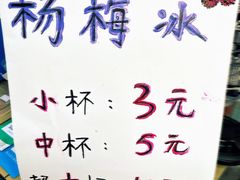 杨梅冰
小杯：3元
中杯：5元